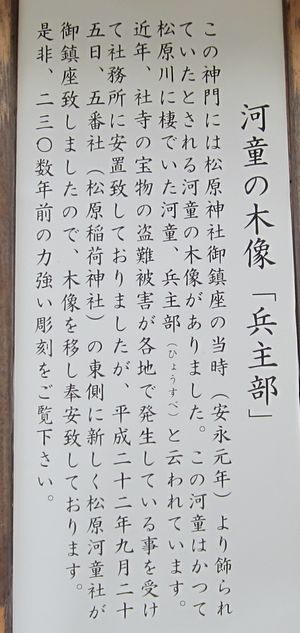 河童の木像「兵主部」
この神門には松原神社御鎮座の当時（安永元年）より飾られ
ていたとされる河童の木像がありました。この河童はかつて
松原川に棲でいた河童、兵主部（ひょうすべ）と云われています。
近年、社寺の宝物の盗難被害が各地で発生している事を受け
て社務所に安置致しておりましたが、平成二十二年九月二十
五日、五番社（松原稲荷神社）の東側に新しく松原河童社が
御鎮座致しましたので、木像を移し奉安致しております。
是非、二三〇数年前の力強い彫刻をご覧下さい。